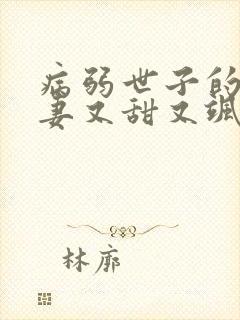 病弱世子的
妻又甜又飒
林廓